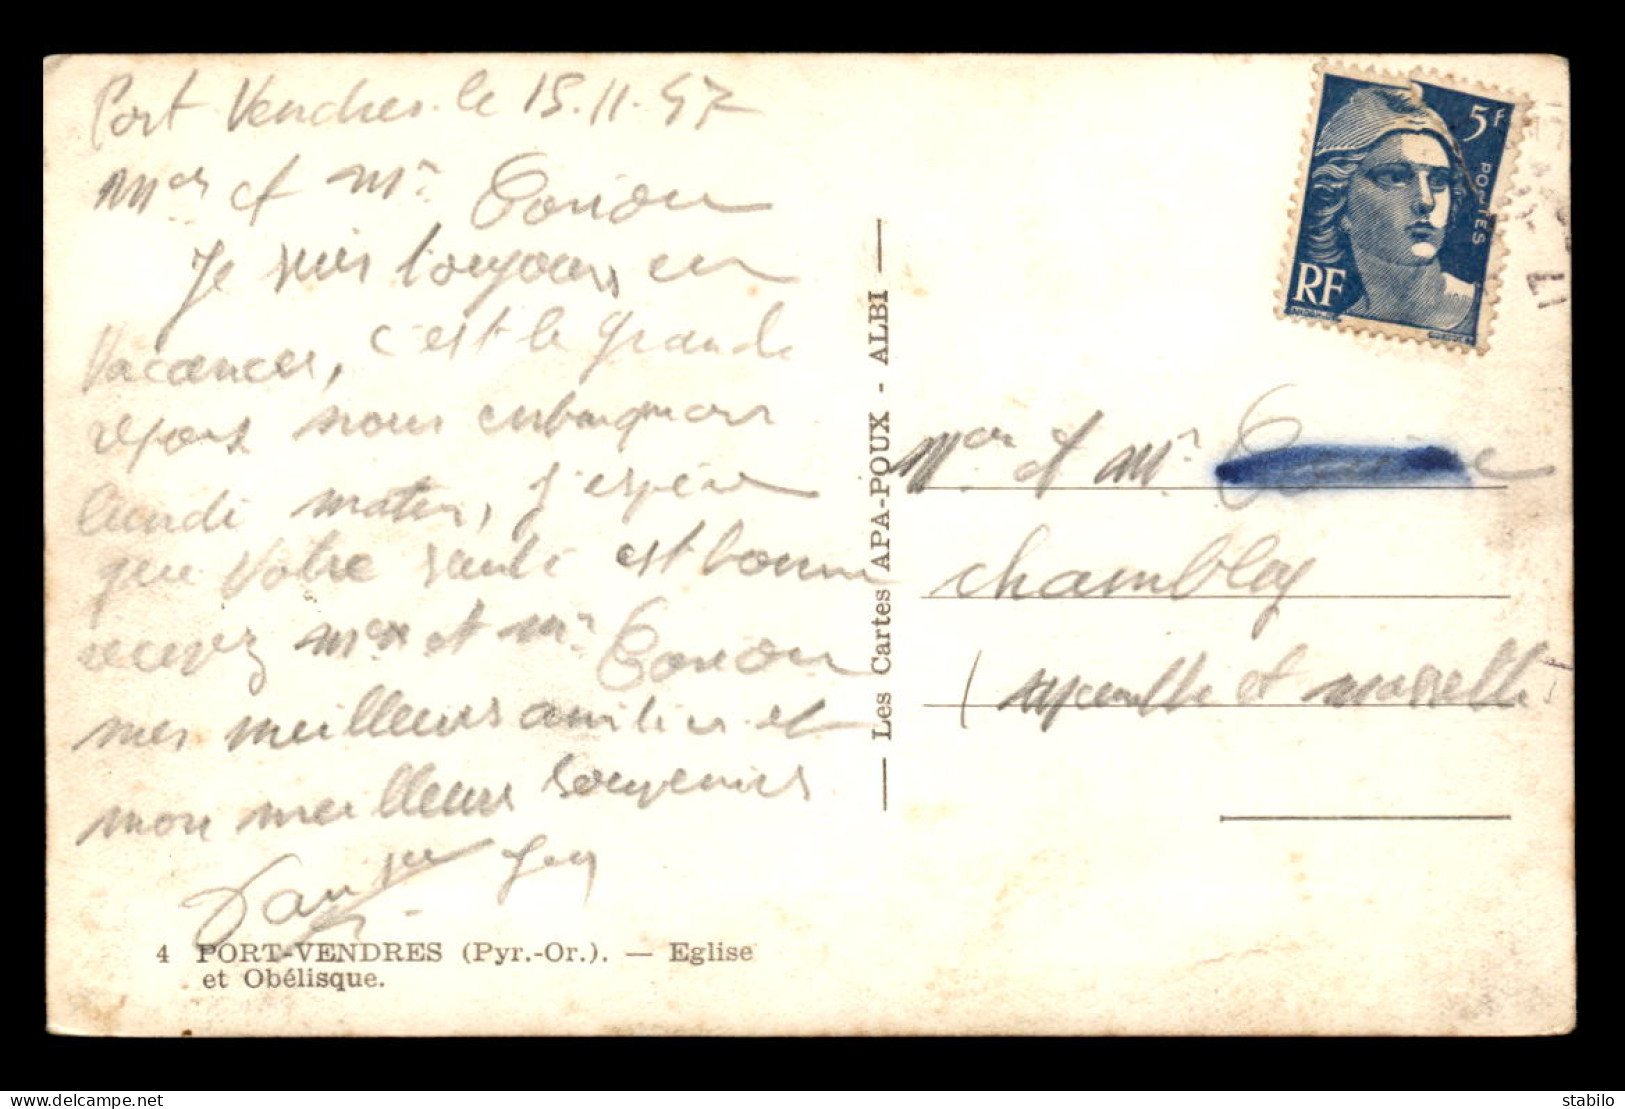 Port Vendres le 15.11.47
Mer et Mr
Je suis toujours en
vacances, c'est le grande
repos nous embarquons
lundi matin, j'espère
que votre santé est bonne
recevez Mer et Mr
mes meilleurs amitiés et
mon meilleurs souvenirs
4 PORT-VENDRES (Pyr.-Or.). — Eglise
et Obélisque.
Les Cartes APA-POUX - ALBI
5F
POSTES
RF
Mer et Mr
Chambley
( et Moselle
delcampe.net
stabilo